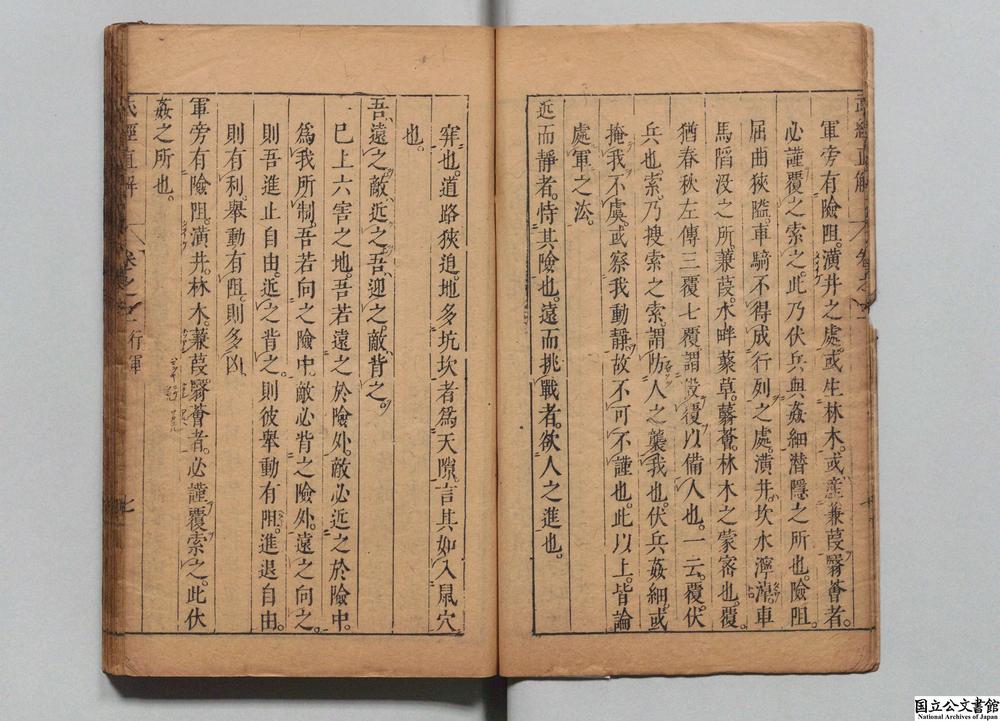 軍旁有險阻。潢井之處。或生林木。或產蒹葭翳薈者。
必謹覆之索之。此乃伏兵與姦細潛隱之所也。險阻。
屈曲狹隘。車騎不得成行列之處。潢井。坎水濘淖。車
馬陷沒之所。蒹葭。水畔藂草。翳薈。林木之蒙密也。覆
猶春秋左傳三覆七覆。謂設覆以備人也。一云。覆。伏
兵也。索。乃搜索之索。謂防人之襲我也。伏兵姦細。或
掩我不虞。或察我動靜。故不可不謹也。此以上。皆論
處軍之法。
近而靜者。恃其險也。遠而挑戰者。欲人之進也。
穽也。道路狹迫。地多坑坎者爲天隙。言其如入鼠穴
也。
吾遠之。敵近之。吾迎之。敵背之。
已上六害之地。吾若遠之於險外。敵必近之於險中。
爲我所制。吾若向之險中。敵必背之險外。遠之向之。
則吾進止自由。近之背之。則彼舉動有阻。進退自由。
則有利。舉動有阻。則多凶。
軍旁有險阻。潢井。林木。蒹葭翳薈者。必謹覆索之。此伏
姦之所也。
武經直解 卷之二 行軍 七
国立公文書館
National Archives of Japan